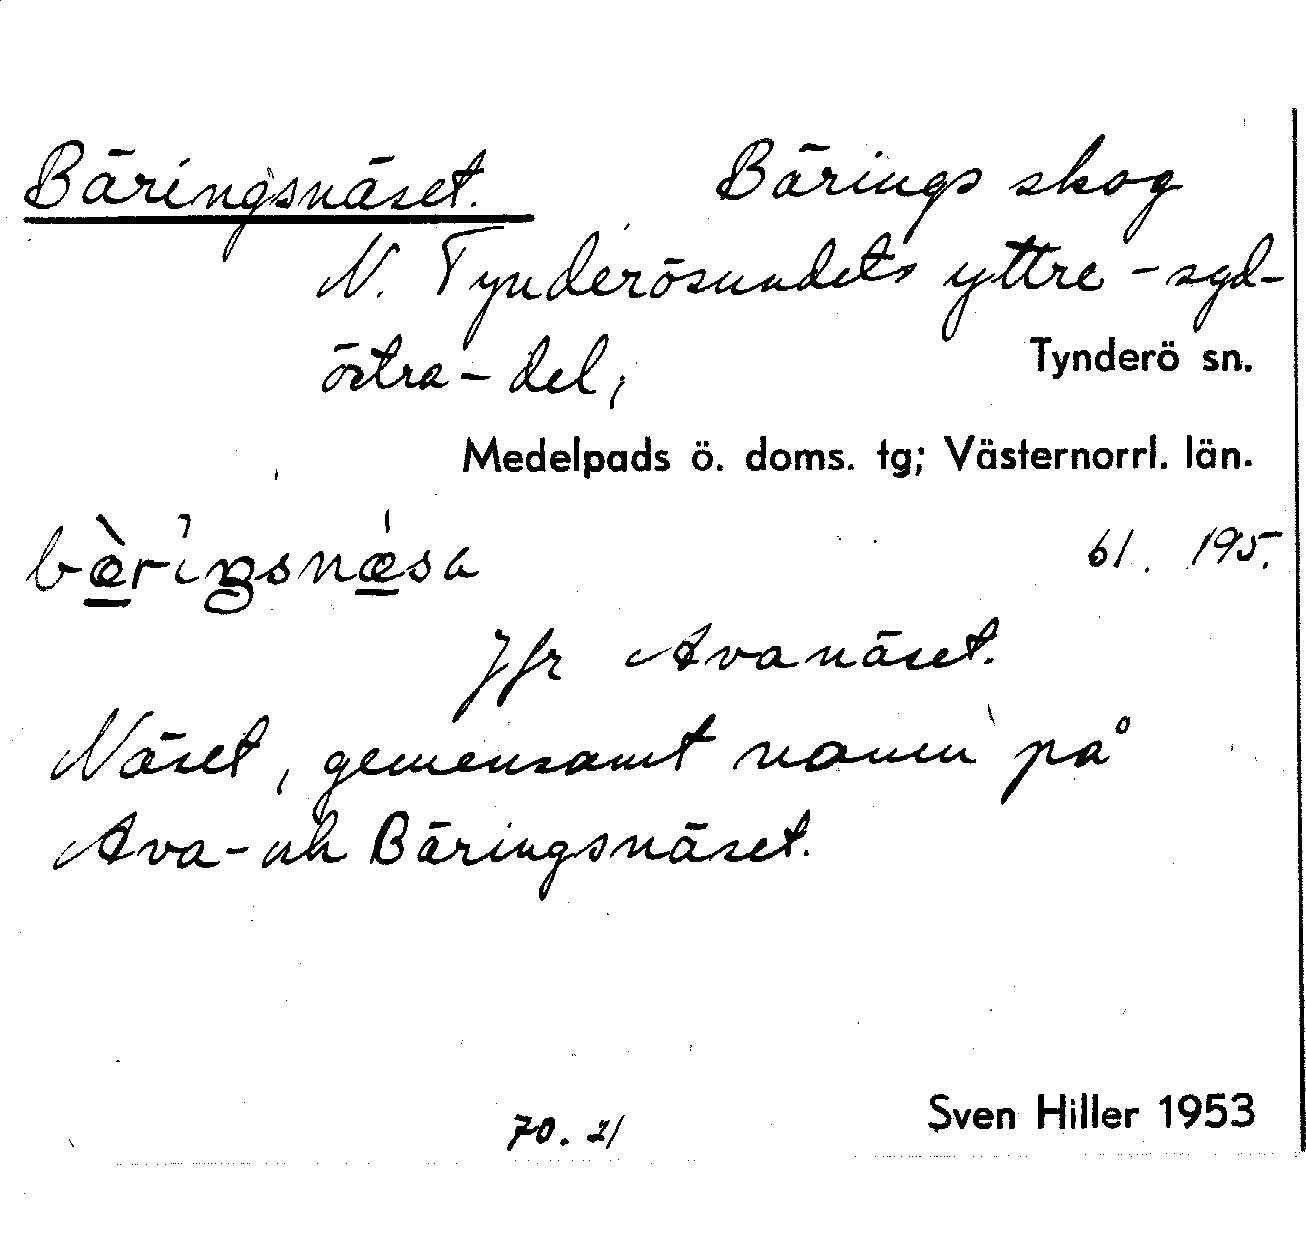 Bäringsnäset. Bärings skog
N. Tynderösundets yttre - syd-
östra - del,
Tynderö sn.
Medelpads ö. doms. tg; Västernorrl. län.
bæ̀riŋsnæsa 61. 195.
Jfr Avanäset.
Näset, gemensamt namn på
Ava- och Bäringsnäset.
70. 21
Sven Hiller 1953